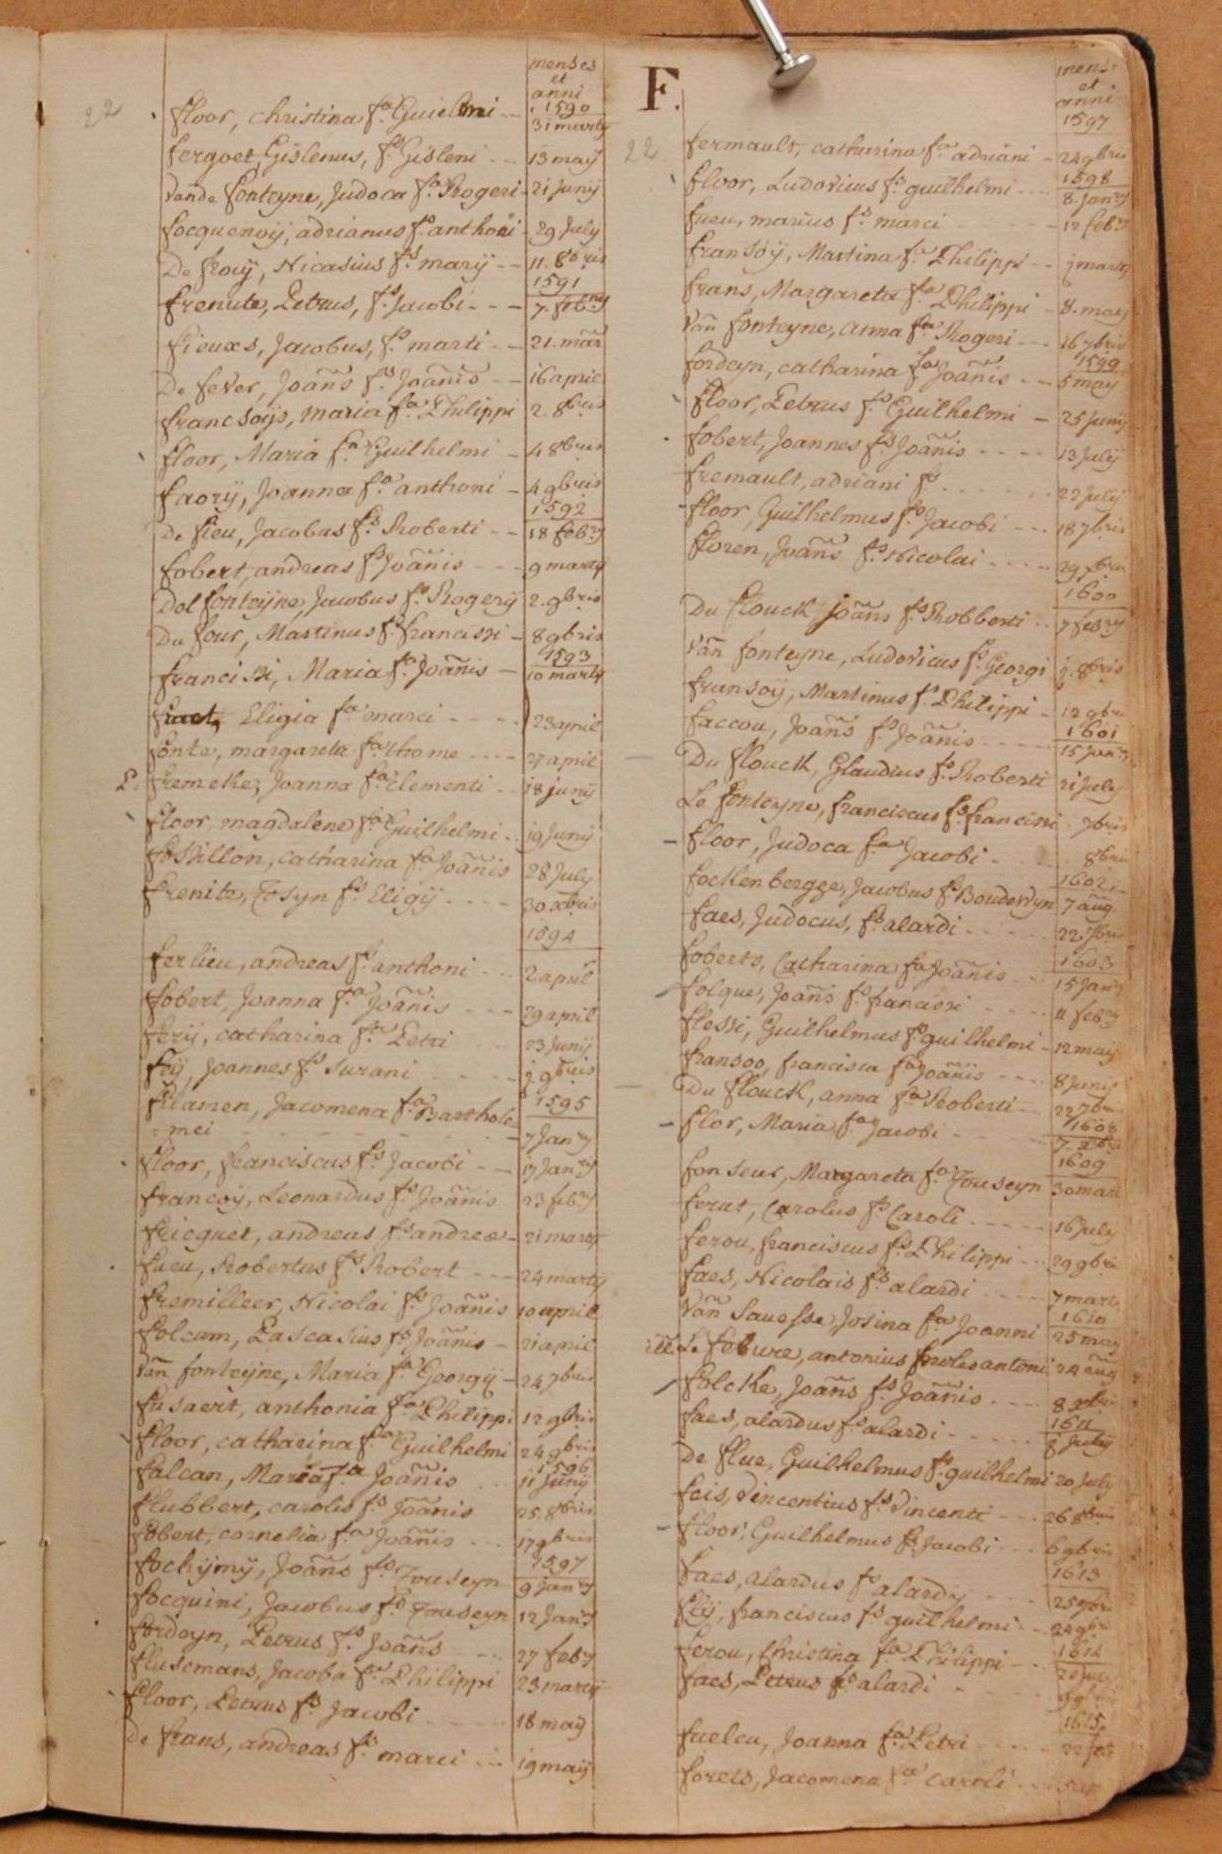 22
menses
et
anni
1590
floor, christina fa. Guielmi -- 31 marty
fergoet, Gislenus, fs Gisleni --- 13 maÿ
Vande fonteyne, Judoca fa Rogeri - 21 Junÿ
focquenoÿ, adrianus fs anthoni - 29 July
De froÿ, Nicasius fs. marÿ -- 11. 8bris
1591
frenute, Petrus, fs. Jacobi - - - 7. febry
fieuxs, Jacobus, fs marti -- 21. mar
De fever, Joañs fs Joañis -- 16 april
francsoijs, maria fa. Philippi 2. 8bris
floor, Maria fa. Guilhelmi - 4 8bris
faorÿ, Joanna fa. anthoni - 4 9bris
1592
De fieu, Jacobus fs Roberti -- 18 febry
fobert, andreas fs Joañis --- 9 marty
Del fonteijne, Jacobus fs. Rogerÿ 2. 9bris
Du four, Martinus fs francisci - 8 9bris
1593
francisci, Maria fa. Joañis - 10 marty
Eligia fa marci ---- 23 april
fonte, margareta fa Thome ---- 27 april
fremeke, Joanna fa Clementi -- 18 junÿ
floor, magdalene fa Guilhelmi -- 19 Junÿ
fossillon, catharina fa Joañis 28 July
frenite, Tosyn fs Eligÿ ---- 30 xbris
1594
ferlieu, andreas fs anthoni --- 2 april
fobert, Joanna fa Joañis --- 29 april
ferÿ, catharina fa Petri -- 23 Junÿ
foÿ, Joannes fs Surani --- j 9bris
1595
filamen, Jacomena fa Bartholo
mei ---- 7 Janry
floor, franciscus fs Jacobi --- 17 Janry
francoÿ, Leonardus fs Joañis 23 febry
fricquet, andreas fs andreae - 21 marty
fueu, Robertus fs Robert --- 24 marty
fremilleer, Nicolai fs Joañis 10 april
folcum, Pascasius fs Joañis - 21 april
Van fonteijne, Maria fa Georgÿ - 24 7bris
fusaert, anthonia fa Philippi 12 9bris
floor, catharina fa Guilhelmi 24 9bris
1596
falcan, Maria fa Joañis -- 11 Junÿ
flubbert, carolis fs Joañis 25. 8bris
fobert, cornelia fa Joañis --- 17 9bris
1597
fochijmÿ, Joañs fs Touseyn 9 Janry
focquini, Jacobus fs Touseyn 12 Janry
fordeyn, Petrus fs Joañs --- 27 feby
flusemans, Jacoba fa Philippi 23 marty
floor, Petrus fs Jacobi ---- 18 may
De frans, andreas fs marci --- 19 maÿ
F.
22
mens
et
anni
1597
fermault, catharina fa adriani - 24 9bris
1598
floor, Ludovicus fs guilhelmi --- 8. Janry
fueu, marius fs marci ---- 12 febry
fransoÿ, Martina fa Philippi -- j marty
frans, Margareta fa Philippi - 8. may
Van fonteyne, anna fa Rogeri -- 16 7bris
1599
fordeyn, catharina fa Joañis -- 5 may
floor, Petrus fs Guilhelmi - 25 Junÿ
fobert, Joannes fs Joañis ---- 13 Julÿ
fremault, adriani fs ---- 22 Julÿ
floor, Guilhelmus fs Jacobi --- 18 7bris
floren, Joañs fs Nicolai ---- 29 xbris
1600
Du flouck, Joañs fs Robberti -- 7 febry
Van fonteyne, Ludovicus fs Georgi j. 8bris
fransoÿ, Martinus fs Philippi - 12 9bris
1601
faccou, Joañs fs Joañis ---- 15 Janry
Du flouck, Glaudius fs Roberti 21 July
Le fonteyne, franciscus fs francisci 7bris
floor, Judoca fa Jacobi --- 8bris
1602
fockenbergge, Jacobus fs Boudewyn 7 aug
faes, Judocus, fs alardi --- 22 7bris
1603
foberts, Catharina fa Joañis -- 15 Janry
folque, Joañs fs francisci ---- 11 febry
flessi, Guilhelmus fs guilhelmi - 12 may
fransoo, francisca fa Joañis --- 8 Juny
Du flouck, anna fa Roberti -- 22 7bris
1608
flor, Maria fa Jacobi --- 7. xbris
1609
fonseur, Margareta fa Touseyn 30 mar
ferut, Carolus fs Caroli ---- 16 July
ferou, franciscus fs Philippi -- 29 9bris
faes, Nicolais fs alardi --- 7 marty
1610
Van Sauesse Josina fa Joanni 25 may
Le febure, antonius antoni 24 aug
folcke, Joañs fs Joañis --- 8 xbris
1611
faes, alardus fs alardi ---- 8 July
De flue, Guilhelmus fs guilhelmi 20 July
feis, Vincentius fs Vincenti --- 26 8bris
floor, Guilhelmus fs Jacobi --- 6 9bris
1613
faes, alardus fs alardÿ --- 25 7bris
flÿ, franciscus fs guilhelmi -- 24 9bris
ferou, Christina fa Philippi --
faes, Petrus fs alardi ---
1615
fuelcu, Joanna fa Petri ---
forets, Jacomena fa Caroli